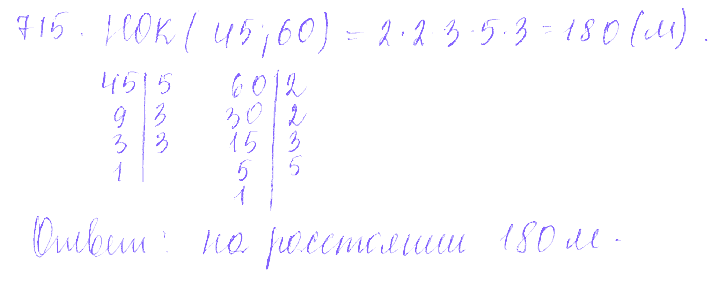 715. НОК(45;60) = 2·2·3·5·3 = 180(м).
45|5 60|2
9|3 30|2
3|3 15|3
1| 5|5
1|
Ответ: на расстоянии 180 м.